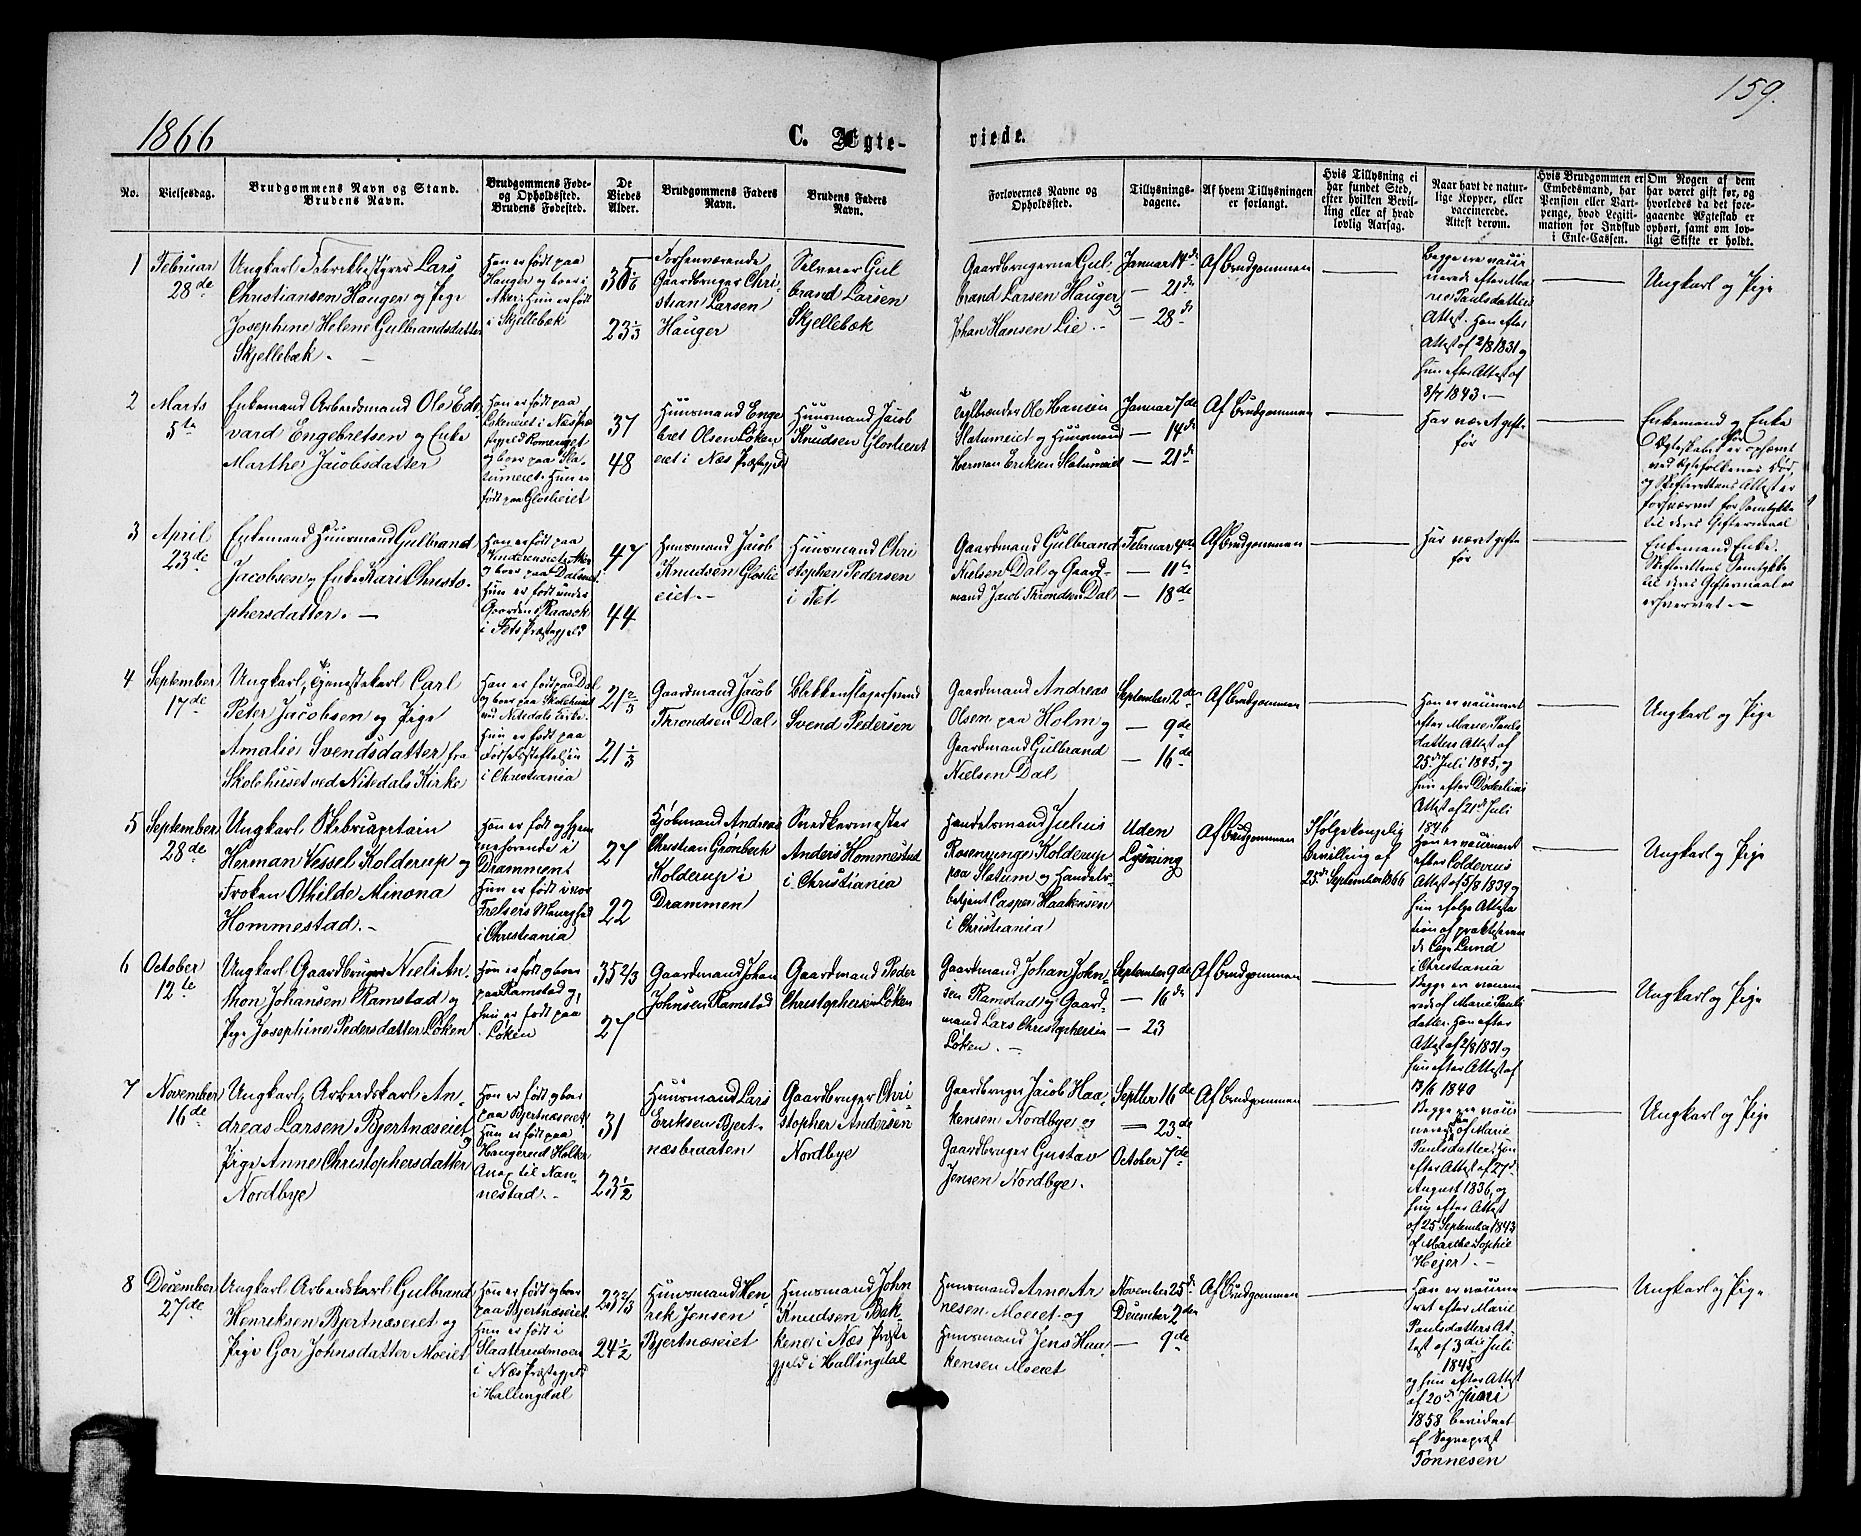 159.
1866
C. Ægte-
viede.
No.
Vielsesdag.
Brudgommens Navn og Stand.
Brudens Navn.
Brudgommens Føde-
og Opholdssted.
Brudens Fødested.
De
Viedes
Alder.
Brudgommens Faders
Navn.
Brudens Faders
Navn.
Forlovernes Navne og
Opholdssted.
Tillysnings-
dagene.
Af hvem Tillysningen
er forlangt.
Hvis Tillysning ei
har fundet Sted,
efter hvilken Bevil-
ling eller af hvad
lovlig Aarsag.
Naar havt de natur-
lige Kopper, eller
vaccinerede.
Attest derom.
Hvis Brudgommen er
Embedsmand, har
Pension eller Vart-
penge, hvad Legiti-
mation for Indskud
i Enke-Cassen.
Om Nogen af dem
har været gift før, og
hvorledes da det fore-
gaaende Ægteskab er
ophørt, samt om lov-
ligt Skifte er holdt.
1
Februar
28de
Ungkarl Fabrikbestyrer Lars
Christiansen Hauger og Pige
Josephine Helene Gulbrandsdatter
Skjellebæk. —
Han er født paa
Hauger og boer i
Aker. Hun er født
i Skjellebæk
35 5/6
23 1/3
Forhenværende
Gaardbruger Chri-
stian Larsen
Hauger
Selveier Gul
brand Larsen
Skjellebæk
Gaardbrugerne Gul-
brand Larsen Hauger og
Johan Hansen Lie. —
Januar 14de
— 21de
— 28de
Af Brudgommen
Begge ere vacci
nerede efter Ma
rie Paulsdatters
Attest. Han efter
Attest af 2/8 1831 og
hun efter Attest af
8/7 1843. —
Ungkarl og Pige
2
Marts
5te
Enkemand Arbeidsmand Ole Ed-
vard Engebretsen og Enke
Marthe Jacobsdatter
Han er født paa
Løkeneiet i Næs Præ
stegjeld Romeriget
og boer paa Sla-
tumeiet. Hun er
født paa Glosleiet
37
48
Huusmand Enge
bret Olsen Løken
eiet i Næs Præstegjeld
Huusmand Jacob
Knudsen Glosleiet
Teglbrænder Ole Hansen
Slatumeiet og Huusmand
Herman Eriksen Slatumeiet
Januar 7de
— 14de
— 21de
Af Brudgommen
Har været gifte
før
Enkemand og Enke
Ægteskabet er ophævet
ved Ægtefolkenes Død,
og Skifterettens Attest er
forhvervet for Samtykke
til deres Giftermaal
3
April
23de
Enkemand Huusmand Gulbrand
Jacobsen og Enke Kari Christo-
phersdatter. —
Han er født paa
og boer paa Dalseiet.
Hun er født under
Gaarden Raasok
i Fets Præstegjeld
47
44
Huusmand Jacob
Knudsen Gloslie
eiet. —
Huusmand Chri
stopher Pedersen
i Fet
Gaardmand Gulbrand
Nielsen Dal og Gaard-
mand Jacob Throndsen Dal
Februar 4de
— 11te
— 18de
Af Brudgommen
Har været gifte
før
Enkemand Enke.
Skifterettens Samtykke
til deres Giftermaal er
erhvervet. —
4
September
17de
Ungkarl, Tjenestekarl Carl
Peter Jacobsen og Pige
Amalie Svendsdatter fra
Skolehuset ved Nitedals Kirke
Han er født paa Dal
og boer paa Skolehuset
ved Nitedals Kirke.
Hun er født paa
Fødselsstiftelsen
i Christiania
21 2/3
21 1/3
Gaardmand Jacob
Throndsen Dal
Blikkenslagersvend
Svend Pedersen
Gaardmand Andreas
Olsen paa Holm og
Gaardmand Gulbrand
Nielsen Dal
September 2den
— 9de
— 16de
Af Brudgommen
Han er vaccineret
efter Marie Pauls
datters Attest af
25de Juli 1845, og
hun efter Døderleins
Attest af 21de Juli
1846
Ungkarl og Pige
5
September
28de
Ungkarl Skibscaptain
Herman Vessel Kolderup og
Frøken Othilde Minona
Hommestad. —
Han er født og hjem
mehørende i
Drammen.
Hun er født i vor
Frelsers Menighed
i Christiania
27
22
Kjøbmand Andreas
Christian Grønbeck
Kolderup i
Drammen
Snedkermester
Anders Hommestad
i Christiania
Handelsmand Julius
Rosenvinge Kolderup
paa Slatum og Handels-
betjent Casper Haakensen
i Christiania
Uden
Lysning
Af Brudgommen
Ifølge kongelig
Bevilling af
25de September 1866
Han er vaccineret
efter Coldevins
Attest af 5/8 1839 og
hun ifølge Attesta
tion af praktiseren
de Læge Lund
i Christiania
Ungkarl og Pige
6
October
12te
Ungkarl Gaardbruger Niels An-
thon Johansen Ramstad og
Pige Josephine Pedersdatter Løken
Han er født og boer
paa Ramstad og,
hun er født paa
Løken
35 2/3
27
Gaardmand Johan
Johnsen Ramstad
Gaardmand Peder
Christophersen Løken
Gaardmand Johan John-
sen Ramstad og Gaard-
mand Lars Christophersen
Løken. —
September 9de
— 16de
— 23
Af Brudgommen
Begge er vaccine
rede af Marie Pauls
datter. Han efter
Attest af 2/8 1831 og
hun efter Attest af
1840
Ungkarl og Pige
7
November
16de
Ungkarl, Arbeidskarl An-
dreas Larsen Bjertnæseiet og
Pige Anne Christophersdatter
Nordbye
Han er født og boer
paa Bjertnæseiet.
Hun er født paa
Haugereid Holker
Anex til Nan-
nestad. —
31
23 1/2
Huusmand Lars
Eriksen Bjert-
næsbraaten
Gaardbruger Chri
stopher Andersen
Nordbye
Gaardbruger Jacob Haa-
kensen Nordbye og
Gaardbruger Gustav
Jensen Nordbye.
Septber 16de
— 23de
October 7de
Af Brudgommen
Begge ere vacci
nerede af Marie
Paulsdatter. Han
efter Attest af 27de
August 1836, og
hun efter Attest
af 25 September 1843
af Marthe Sophie
Hejer. —
Ungkarl og Pige
8
December
27de
Ungkarl Arbeidskarl Gulbrand
Henriksen Bjertnæseiet og
Pige Gor Johnsdatter Moeiet
Han er født og boer
paa Bjertnæseiet.
Hun er født i
Slaattreidmoen
i Næs Præstegjeld
i Hallingdal
23 2/3
24 1/2
Huusmand Hen-
rik Jensen
Bjertnæseiet
Huusmand John
Knudsen Bak-
kene i Næs Præste
gjeld i Hallingdal
Huusmand Arne Ar
nesen Moeiet og
Huusmand Jens Haa-
kensen Moeiet
November 25de
December 2den
— 9de
Af Brudgommen
Han er vaccine
ret efter Marie
Paulsdatters At-
test af 3die Juli
1845
og hun efter Attest
af 20de Juni
1858 bevidnet
af Sognepræst
Tønnesen
Ungkarl og Pige